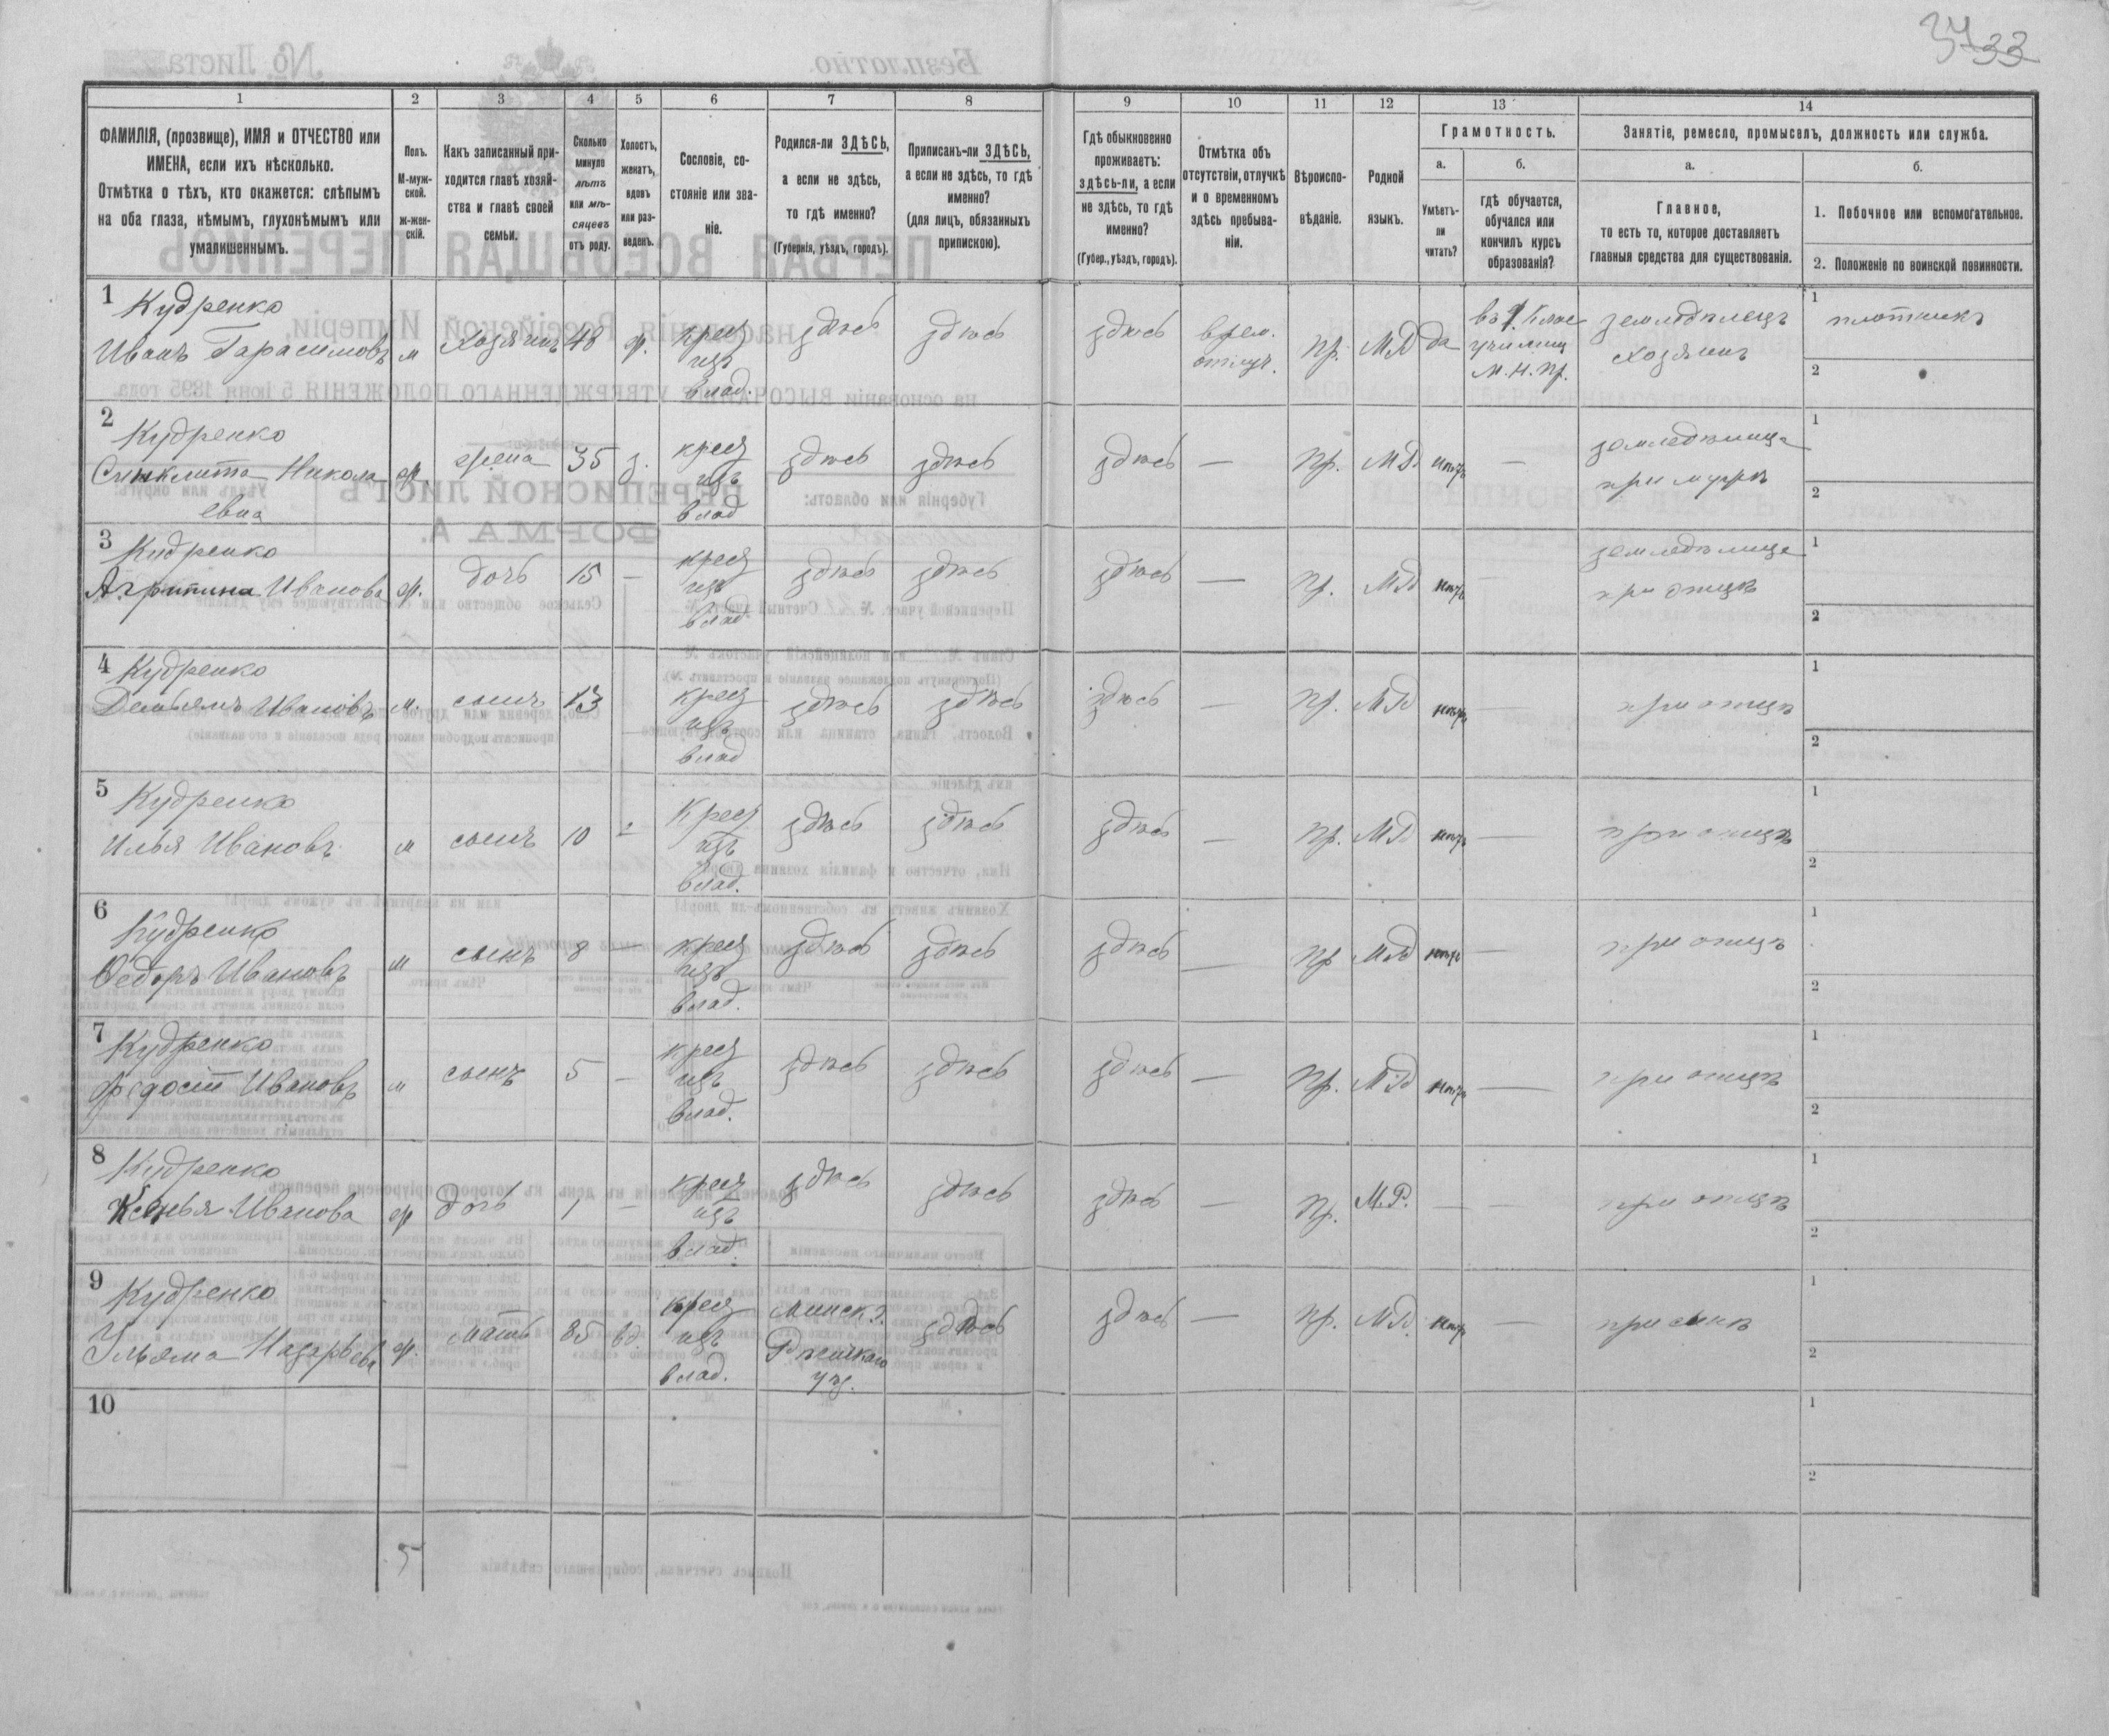 3733
1
2
3
4
5
6
7
8
9
10
11
12
13
14
ФАМИЛІЯ, (прозвище), ИМЯ и ОТЧЕСТВО или
ИМЕНА, если ихъ нѣсколько.
Отмѣтка о тѣхъ, кто окажется: слѣпымъ
на оба глаза, нѣмымъ, глухонѣмымъ или
умалишеннымъ.
Полъ.
М-муж-
ской.
ж-жен-
скій.
Какъ записанный при-
ходится главѣ хозяй-
ства и главѣ своей
семьи.
Сколько
минуло
лѣтъ
или мѣ-
сяцевъ
отъ роду.
Холостъ,
женатъ,
вдовъ
или раз-
веденъ.
Сословіе, со-
стояніе или зва-
ніе.
Родился-ли ЗДѢСЬ,
а если не здѣсь,
то гдѣ именно?
(Губернія, уѣздъ, городъ).
Приписанъ-ли ЗДѢСЬ,
а если не здѣсь, то гдѣ
именно?
(для лицъ, обязанныхъ
припискою).
Гдѣ обыкновенно
проживаетъ:
здѣсь-ли, а если
не здѣсь, то гдѣ
именно?
(Губер., уѣздъ, городъ).
Отмѣтка объ
отсутствіи, отлучкѣ
и о временномъ
здѣсь пребыва-
ніи.
Вѣроиспо-
вѣданіе.
Родной
языкъ.
Грамотность.
а.
Умѣетъ-
ли
читать?
б.
гдѣ обучается,
обучался или
кончилъ курсъ
образованія?
Занятіе, ремесло, промыселъ, должность или служба.
а.
Главное,
то есть то, которое доставляетъ
главныя средства для существованія.
б.
1. Побочное или вспомогательное.
2. Положеніе по воинской повинности.
1
Кудренко
Иванъ Гарасимовъ м Хозяинъ 48 ж. крест
изъ
влад. здѣсь здѣсь здѣсь врем.
отлуч. пр. МР да
училищ
М. Н. Пр. земледѣлецъ
хозяинъ 1 плотникъ
2
2
Кудренко
Синклита Никола
евна ж. жена 35 з. крест
изъ
влад здѣсь здѣсь здѣсь — пр. МР. нѣтъ — земледѣлица
при мужѣ 1
2
3
Кудренко
Агрипина Иванова ж. дочь 15 — крест
изъ
влад. здѣсь здѣсь здѣсь — пр. МР нѣтъ — земледѣлица
при отцѣ 1
2
4
Кудренко
Демьянъ Ивановъ м. сынъ 13 крест
изъ
влад здѣсь здѣсь здѣсь — пр. МР нѣтъ — при отцѣ 1
2
5
Кудренко
Илья Ивановъ м сынъ 10 — Крест
изъ
влад. здѣсь здѣсь здѣсь — пр. МР нѣтъ — при отцѣ 1
2
6
Кудренко
Ѳедоръ Ивановъ м сынъ 8 — крест
изъ
влад. здѣсь здѣсь здѣсь — пр МР нѣтъ — при отцѣ 1
2
7
Кудренко
Ивановъ м сынъ 5 — крест
изъ
влад. здѣсь здѣсь здѣсь — пр. МР нѣтъ — при отцѣ 1
2
8
Кудренко
Ксенья Иванова ж дочь 1 — крест
изъ
влад. здѣсь здѣсь здѣсь — пр. М.Р. — — при отцѣ 1
2
9
Кудренко
Ульяна Назарьева ж. мать 85 вд. крест
изъ
влад. Минск. г.
Рѣчицкаго
уѣз. здѣсь здѣсь — пр. МР. нѣтъ — при сынѣ 1
2
10
1
2
5